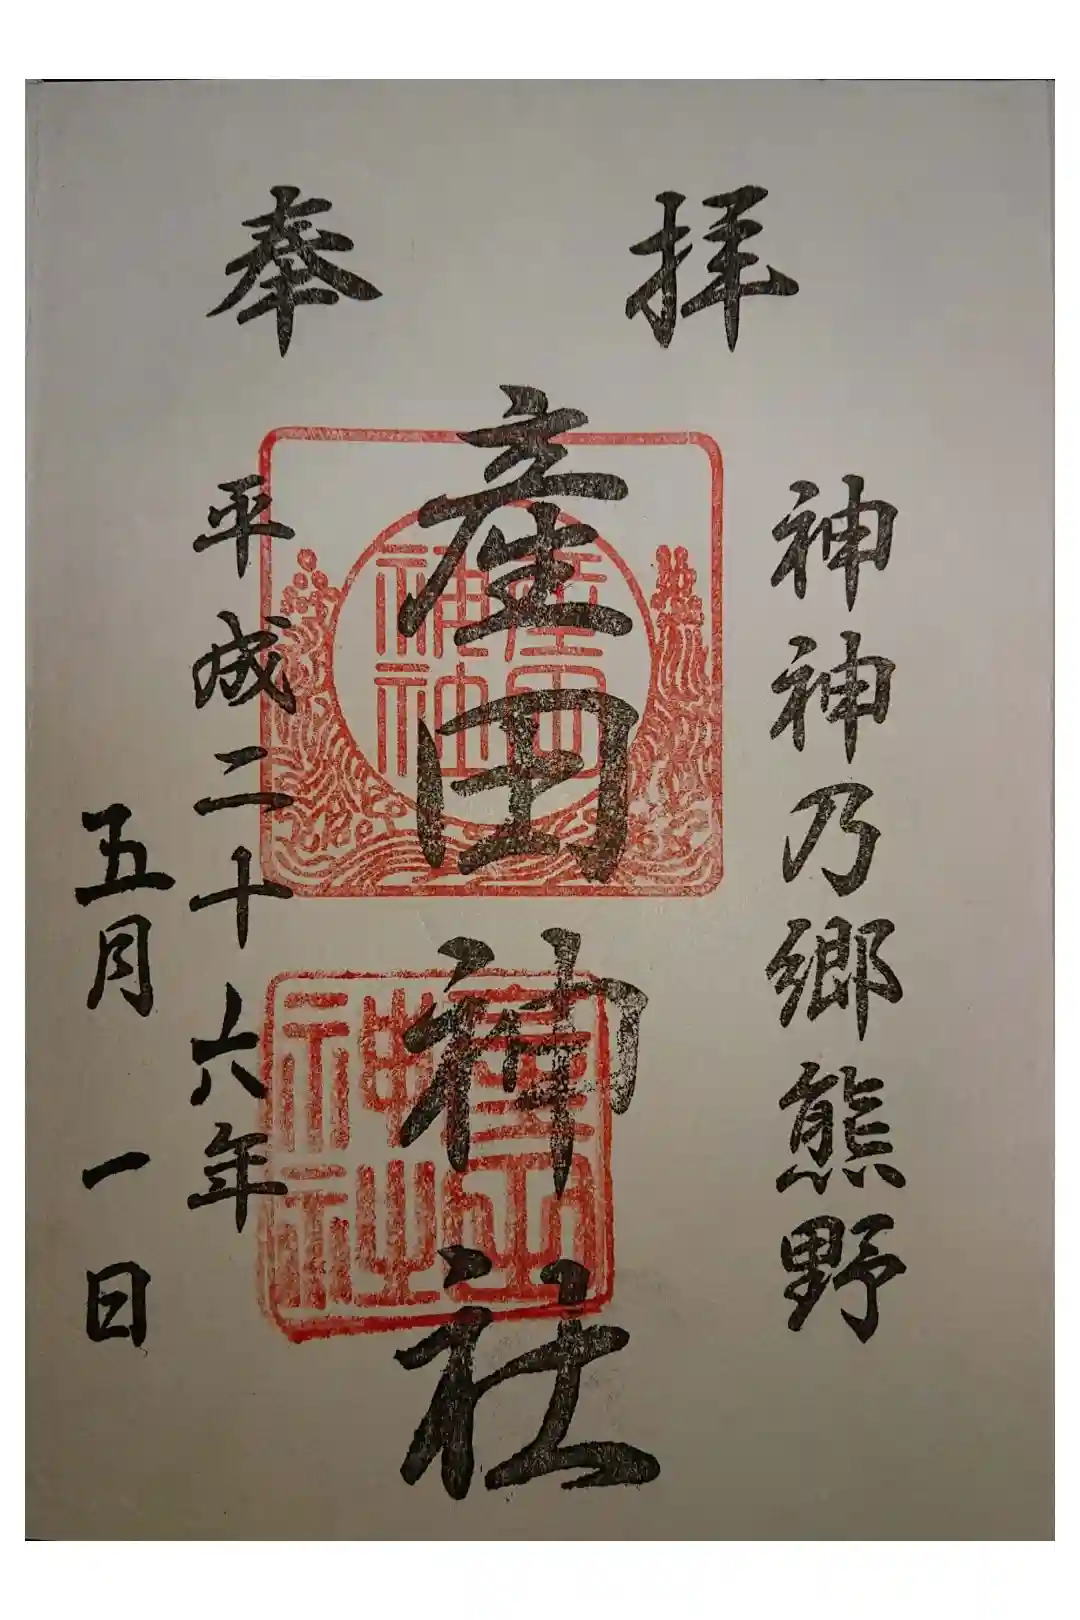 奉拝
神神乃郷熊野
産田神社
平成二十六年
五月一日
産田神社
産田神社